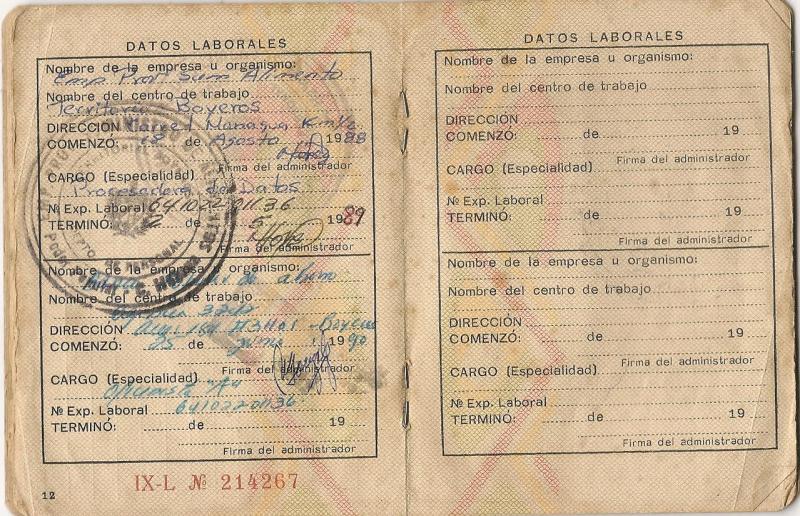 DATOS LABORALES
Nombre de la empresa u organismo:
Emp. Prov. Sum Alimento
Nombre del centro de trabajo
Territorio Boyeros
DIRECCIÓN Carret Managua Km
COMENZÓ: de Agosto 1988
Firma del administrador
CARGO (Especialidad)
Procesadora de Datos
№ Exp. Laboral 64102201136
TERMINÓ: 2 de 5 1989
Firma del administrador
Nombre de la empresa u organismo:
Nombre del centro de trabajo
DIRECCIÓN
COMENZÓ: 25 de 1990
Firma del administrador
CARGO (Especialidad)
Oficinista "A"
№ Exp. Laboral 64102201136
TERMINÓ: de 19
Firma del administrador
IX-L № 214267
12
DATOS LABORALES
Nombre de la empresa u organismo:
Nombre del centro de trabajo
DIRECCIÓN
COMENZÓ: de 19
Firma del administrador
CARGO (Especialidad)
№ Exp. Laboral
TERMINÓ: de 19
Firma del administrador
Nombre de la empresa u organismo:
Nombre del centro de trabajo
DIRECCIÓN
COMENZÓ: de 19
Firma del administrador
CARGO (Especialidad)
№ Exp. Laboral
TERMINÓ: de 19
Firma del administrador